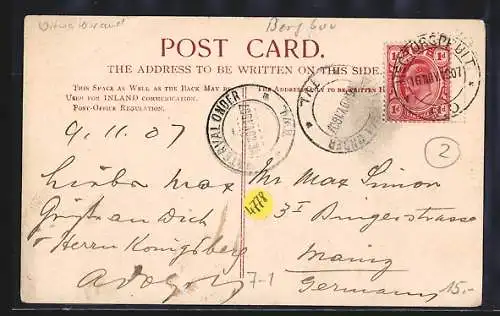 Berg bou
POST CARD.
THE ADDRESS TO BE WRITTEN ON THIS SIDE.
THIS SPACE AS WELL AS THE BACK MAY BE
USED FOR INLAND COMMUNICATION.
POST-OFFICE REGULATION.
THE ADDRESS ONLY TO BE WRITTEN H
9.11.07
Lieber Max
Grüße an Dich
u Herrn Königsberg
Adolf
7-1
WATERVAL ONDER
Z.A.R
4778
1d
1d
2
Mr Max Simon
3 I Bingerstrasse
Mainz
Germany
15.-